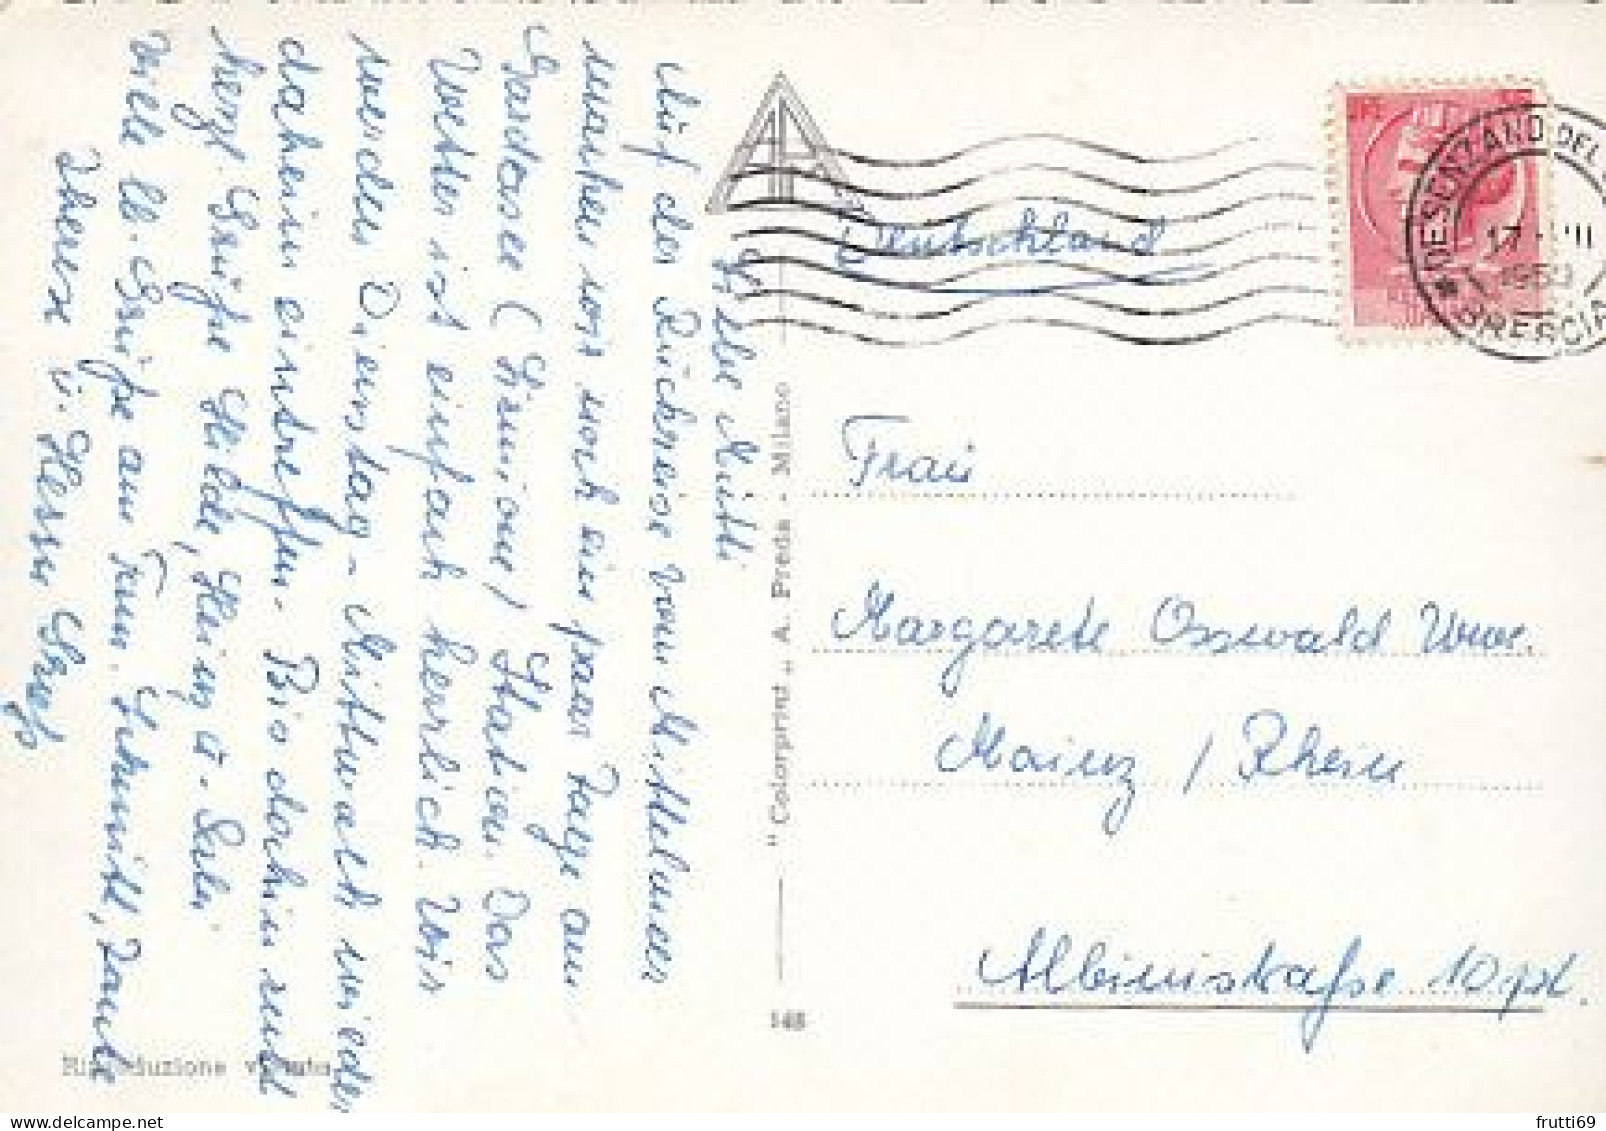 Liebe Mutti
Auf der Rückreise vom Mittelmeer
machen wir noch ein paar Tage am
Gardasee (Sirmione) Station. Das
Wetter ist einfach herrlich. Wir
werden Dienstag - Mittwoch wieder
daheim eintreffen. Bis dahin recht
herzl. Grüße Hilde, Heinz u.
viele lb. Grüße am Fam. Schmitt, Tante
u. Herrn
Deutschland
DESENZANO DEL
17
BRESCIA
Frau
Margarete Osswald Wwe.
Mainz / Rhein
Albinistraße 10 pt.
"Colorprint" A. Preda - Milano
148
Riproduzione vietata
frutti69